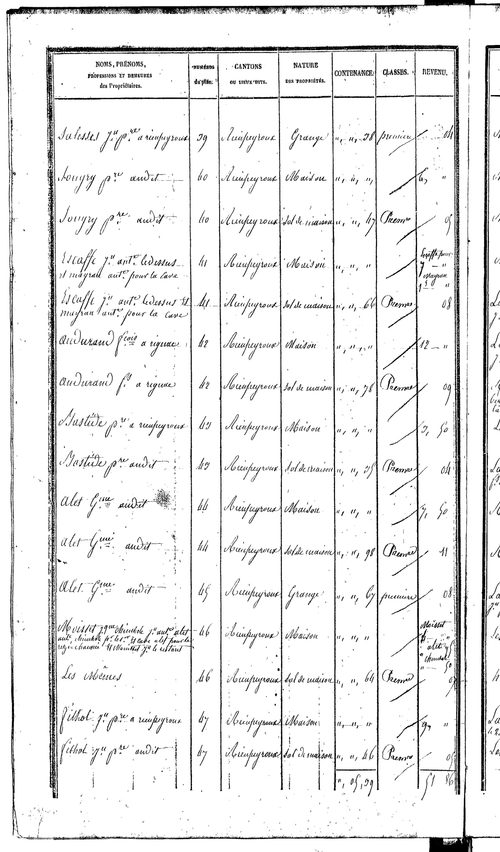 NOMS, PRÉNOMS, PROFESSIONS ET DEMEURES des Propriétaires. NUMÉROS du plan. CANTONS OU LIEUX-DITS. NATURE DES PROPRIÉTÉS. CONTENANCE. CLASSES. REVENU.
Salesses jn pre a rieupeyroux 39 Rieupeyroux Grange " " 38 première 04
Songry pre audit 40 Rieupeyroux Maison " " " 6 "
Songry pre audit 40 Rieupeyroux Sol de maison " " 47 Preme 05
Escaffe jn ant. ledessus 41 Rieupeyroux Maison " " "
et magran ant. pour la cave
Escaffe jn ant. ledessus et 41 Rieupeyroux Sol de maison " " 66 Preme 08
magran ant. pour la cave
andurand fcois a rignac 42 Rieupeyroux Maison " " " 12 "
andurand fs a rignac 42 Rieupeyroux Sol de maison " " 78 Preme 09
Bastide pre a rieupeyroux 43 Rieupeyroux Maison " " " 3, 50
Bastide pre audit 43 Rieupeyroux Sol de maison " " 35 Preme 04
alet Gme audit 44 Rieupeyroux Maison " " " 7, 50
alet Gme audit 44 Rieupeyroux Sol de maison " " 98 Preme 11
alet Gme audit 45 Rieupeyroux Grange " " 67 première 08
46 Rieupeyroux Maison " " "
Les Mêmes 46 Rieupeyroux Sol de maison " " 64 Preme
fithot jn pre a rieupeyroux 47 Rieupeyroux Maison " " " 9 "
fithot jn pre audit 47 Rieupeyroux Sol de maison " " 46 Preme 05
" 05, 39 51 86